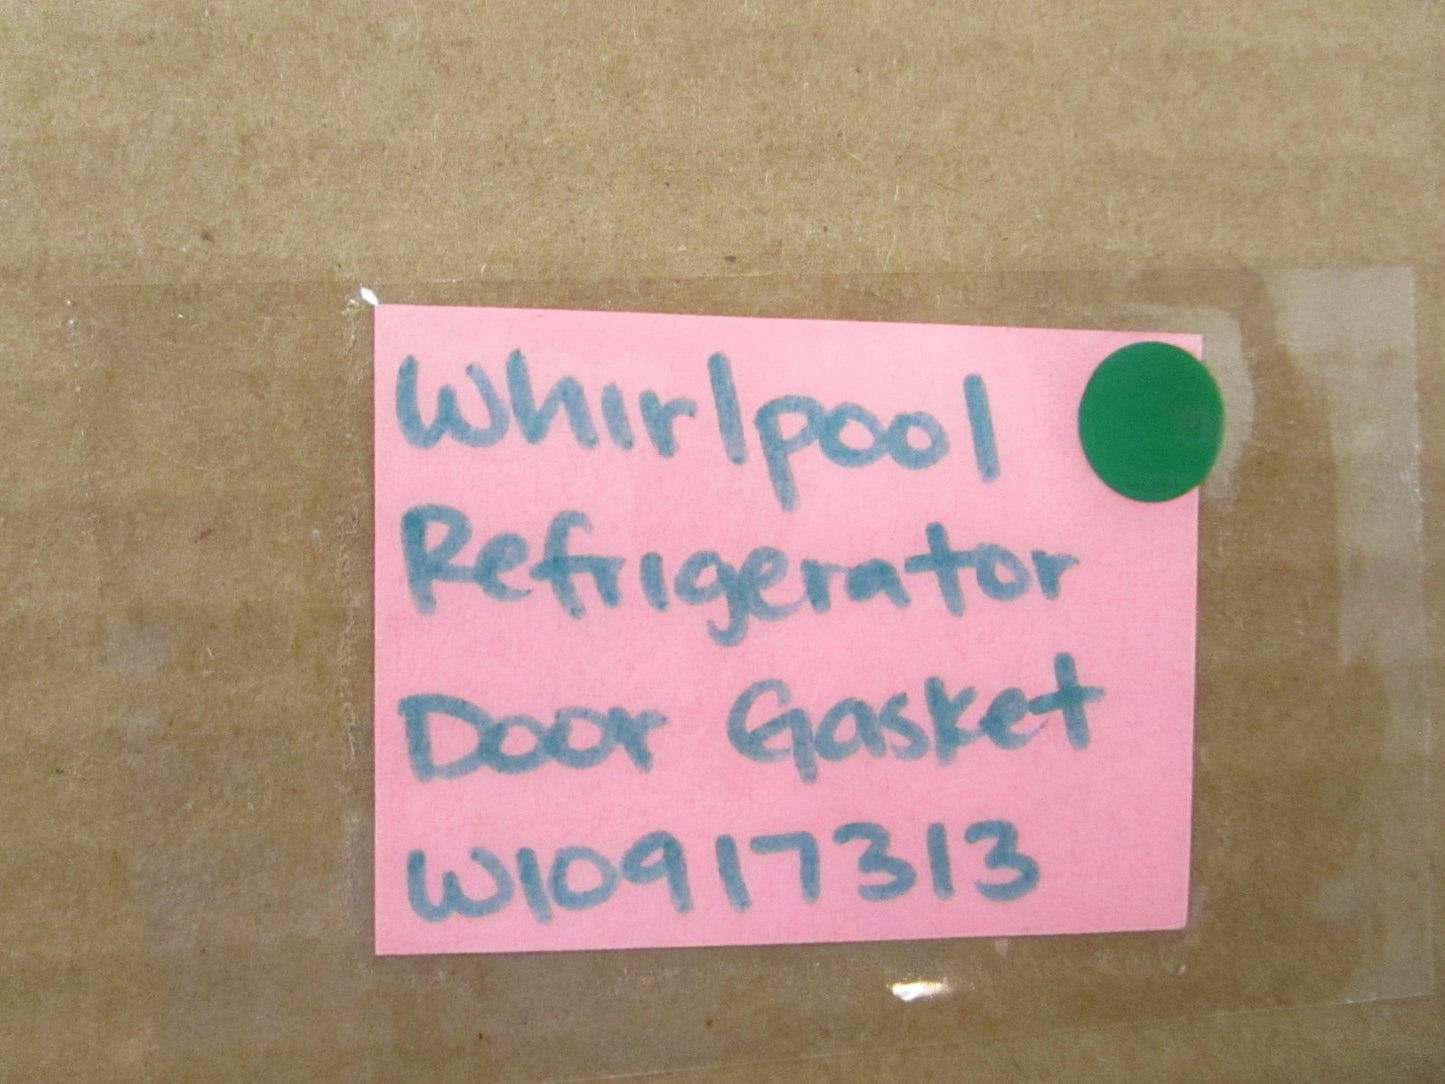 Whirlpool
Refrigerator
Door Gasket
W10917313